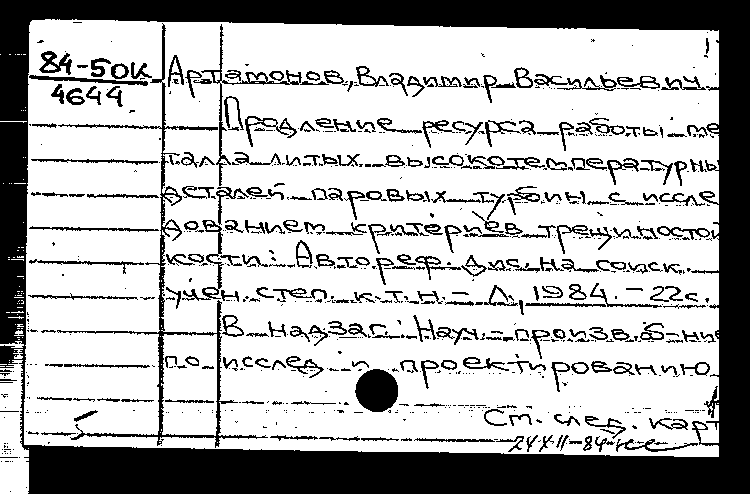 84-50К
4644
Артамонов, Владимир Васильевич
Продление ресурса работы ме
талла литых высокотемпературны
деталей паровых турбины с иссле
дованием критериев трещиностой
кости: Автореф. дис. на соиск.
учен. степ. к.т.н. - Л., 1984. - 22с.
В надзаг.: Науч.-произв. об-ние
по исслед. и проектированию
См. след. карт
5